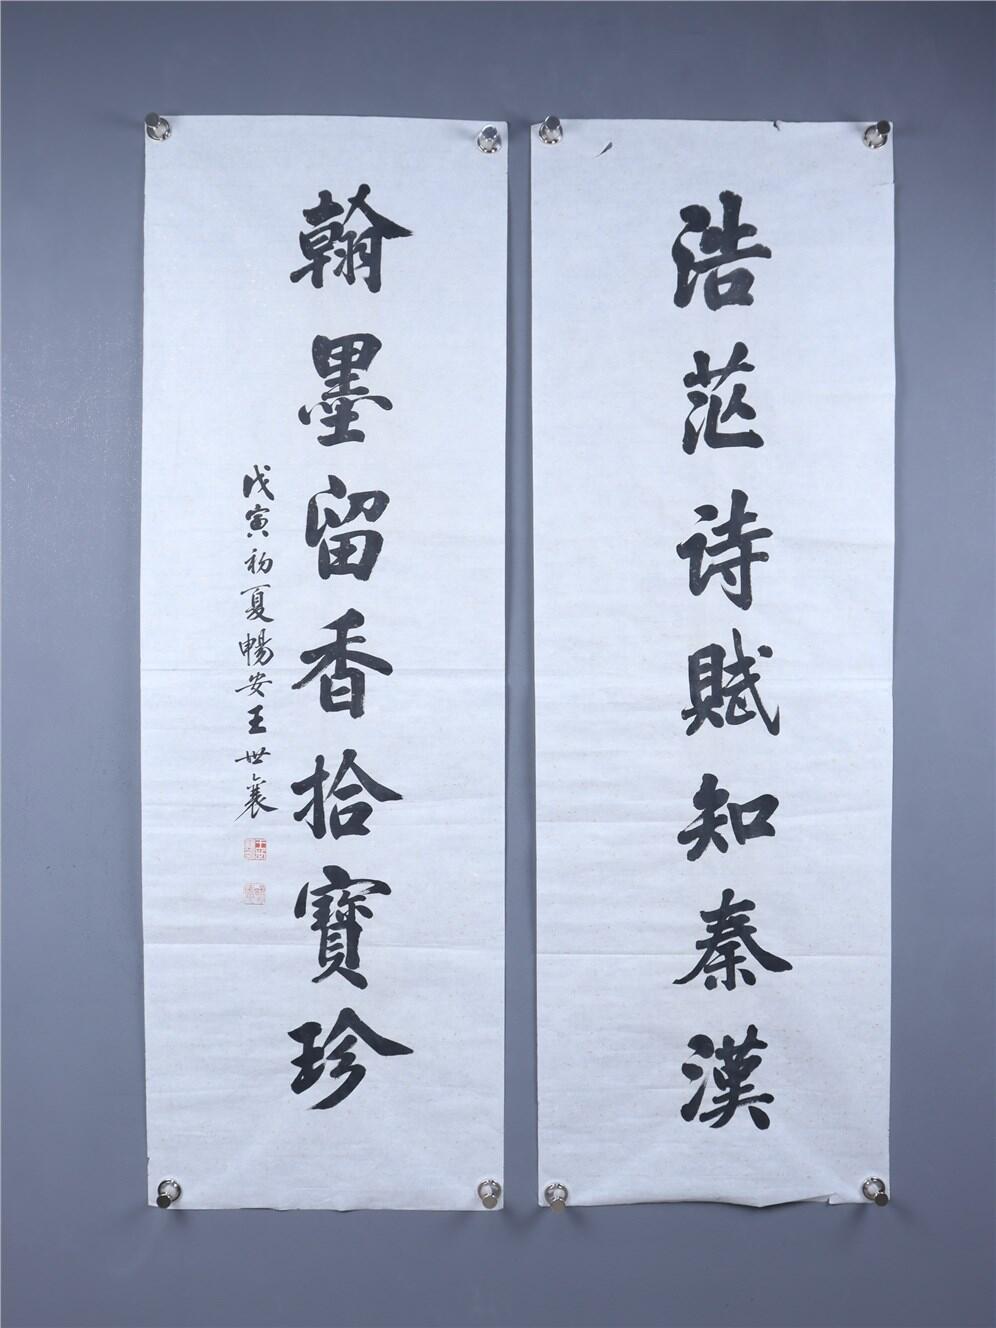 浩茫诗賦知秦漢
翰墨留香拾寶珍
戊寅初夏暢安王世襄